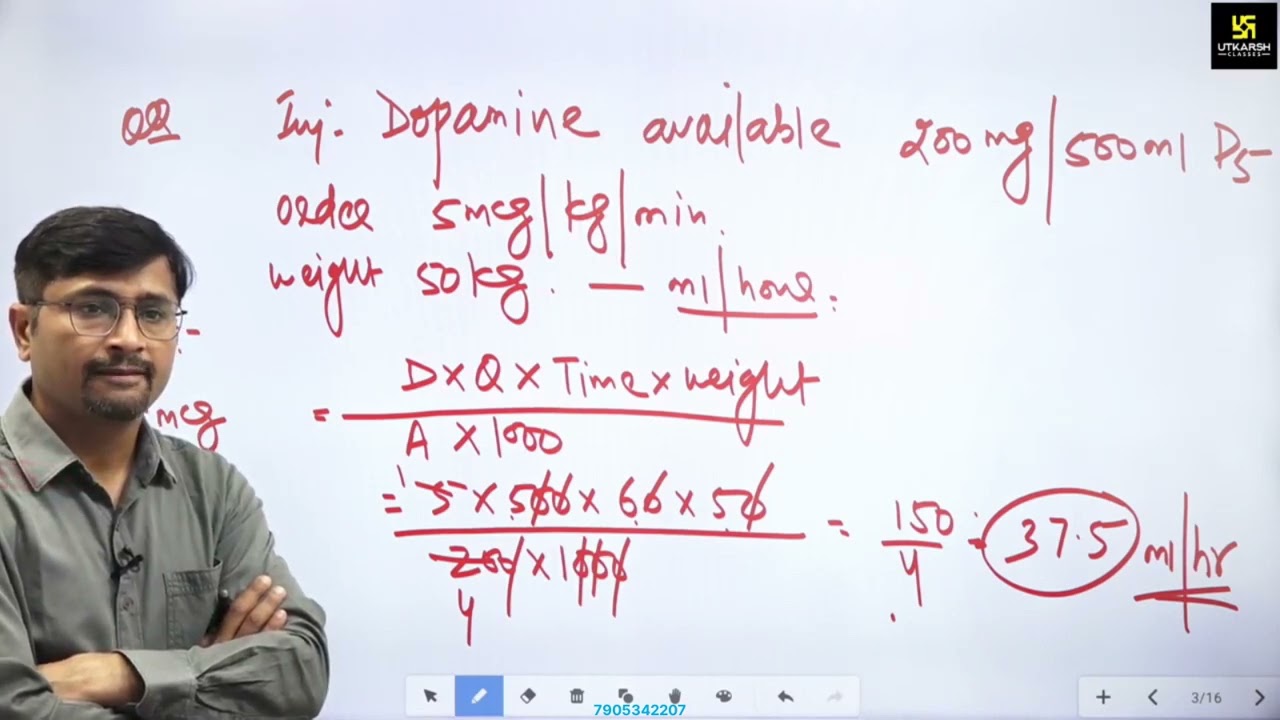 UTKARSH
CLASSES
Inj. Dopamine available 200mg/500ml D5
order 5mcg/kg/min.
weight 50kg. — ml/hour.
mcg = D×Q×Time×weight
A×1000
= 5×500×60×50 = 150 = 37.5 ml/hr
200×1000 4
4
3/16
7905342207